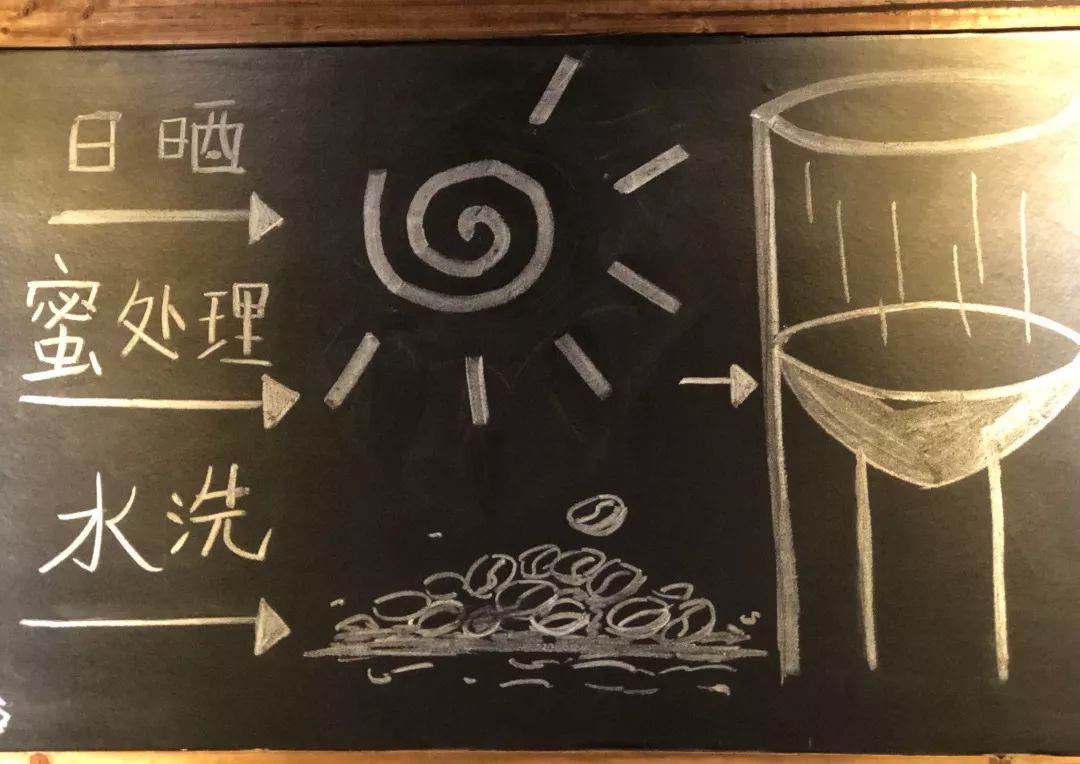 日晒
蜜处理
水洗